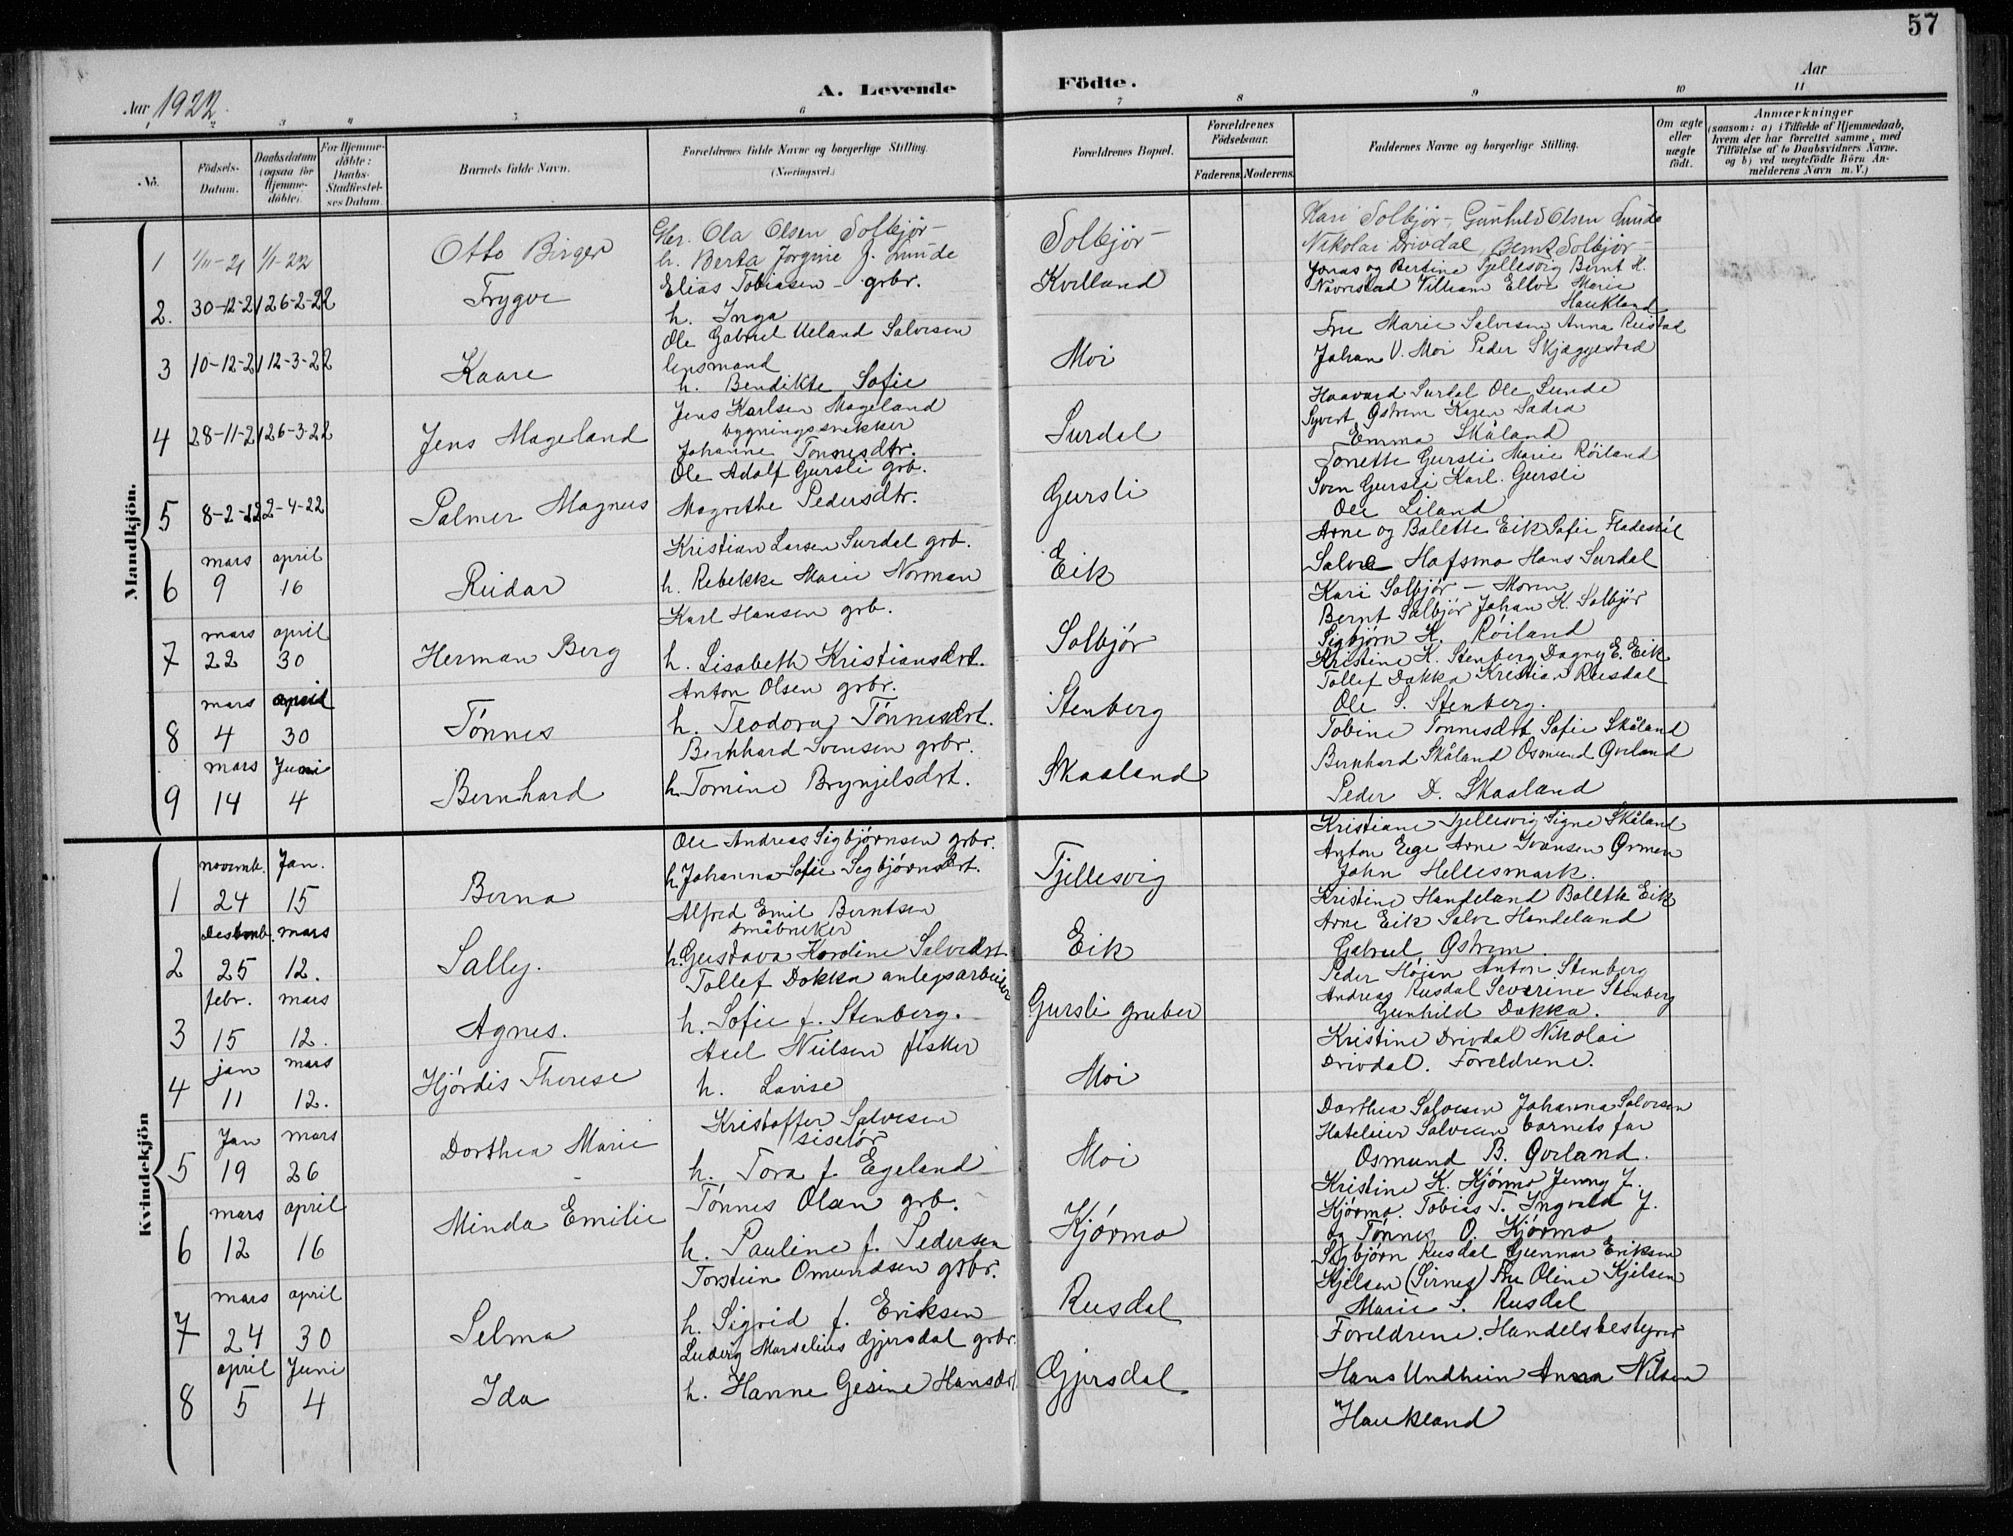 57
A. Levende Födte.
Aar 1922.
Aar
3 4 5 6 7 8 9 10 11
No.
Födsels-Datum.
Daabsdatum (ogsaa for Hjemme-döbte).
For Hjemme-döbte: Daabs-Stadfæstel-ses Datum.
Barnets fulde Navn.
Forældrenes fulde Navne og borgerlige Stilling. (Næringsvei.)
Forældrenes Bopæl.
Forældrenes Födselsaar.
Faderens. Moderens.
Faddernes Navne og borgerlige Stilling.
Om ægte eller uægte födt.
Anmærkninger
(saasom: a) i Tilfælde af Hjemmedaab,
hvem der har forrettet samme, med
Tilföielse af to Daabsvidners Navne.
og b) ved uægtefödte Börn An-
melderens Navn m. V.)
Mandkjön.
1 1/11-21 1/1-22 Otto Birger
Gbr. Ola Olsen Solbjør-
h. Berta Jorgine f. Lunde
Solbjör-
Kari Solbjør- Gunhild Olsen Lunde
Nikolai Drivdal Bernt Solbjør-
2. 30-12-21 26-2-22 Trygve
Elias Tobiasen - grbr.
h. Inga
Kvilland
Jonas og Bertine Tjellesvig Bernt H.
Navrestad Villiam Ellve Marie
Haukland
3 10-12-21 12-3-22 Kaare
Ole Gabriel Ueland Salvesen
lensmand
h. Bendikte Sofie
Moi
Fru Marie Salvesen Anna Reistad
Johan V. Moi Peder Skjæggestad
4 28-11-21 26-3-22 Jens Mageland
Jens Karlsen Mageland
bygningssnekker
Johanne Tonnesdtr.
Surdal
Haavard Surdal Ole Lunde
Syvert Østrem Karen Sædra
Emma Skåland
5 8-2-22 2-4-22 Palmer Magnus
Ole Adolf Gursli grb.
Magrethe Pedersdtr.
Gursli
Tonette Gursli Marie Röiland
Sven Gursli Karl Gursli
Ole Liland
6 mars 9 april 16 Reidar
Kristian Larsen Surdal grb.
h. Rebekke Marie Norman
Eik
Arne og Bolette Eik Sofie Fladestöl
Salve Hafsmo Hans Surdal
7 mars 22 april 30 Herman Berg
Karl Hansen grb.
h. Lisabeth Kristiansdrt.
Solbjör
Kari Solbjör - Moren
Bernt Solbjör Johan K. Solbjör
Sigbjørn K. Röiland
8 mars 4 april 30 Tönnes
Anton Olsen grbr.
h. Teodora Tönnesdrt.
Stenberg
Kristine K. Stenberg Dagny E. Eik
Tollef Dokka Kristian Rusdal
Ole S. Stenberg.
9 mars 14 Juni 4 Bernhard
Bernhard Svensen grbr.
h. Tomine Brynjelsdrt.
Skaaland
Tobine Tonnesdrt Sofie Skåland
Bernhard Skåland Osmund Qveland
Peder D. Skaaland
Kvindekjön
1 novemb. 24 Jan. 15 Berna
Ole Andreas Sigbjørnsen grbr.
h. Johanna Sofie Sigbjørnsdrt.
Tjellesvig
Kristiane Tjellesvig Signe Skåland
Anton Ege Arne Svensen
John Hellesmark.
2 Desemb. 25 mars 12. Sally.
Alfred Emil Berntsen
småbruker
h. Gustava Karoline Salvedrt.
Eik
Kristine Handeland Bolette Eik
Arne Eik Salve Handeland
Gabriel Østrem.
3 febr. 15 mars 12. Agnes.
Tollef Dokka anlegsarbeider
h. Sofie f. Stenberg.
Gursli gruber
Peder Anton Stenberg
Andreas Rusdal Severine Stenberg
Gunhild Dokka.
4 jan 11 mars 12. Hjördis Therese
Axel Nielsen fisker
h. Lovise
Moi
Kristine Drivdal Nikolai
Drivdal. Foreldrene.
5 Jan 19 mars 26 Dorthea Marie
Kristoffer Salvesen
siselör
h. Tora f. Egeland
Moi
Dorthea Salvesen Johanna Salvesen
Hateleier Salvesen barnets far
Osmund B. Qveland.
6 mars 12 april 16 Minda Emilie
Tönnes Olsen grb.
h. Pauline f. Pedersen
Kjörmo
Kristine K. Kjörmo Jenny J.
Kjörmo. Tobias T. Ingvald J.
og Tönnes O. Kjörmo
7 mars 24 april 30 Selma
Torstein Omundsen grbr.
h. Sigrid f. Eriksen
Rusdal
Sigbjörn Rusdal Gunnar Eriksen
Kjelsen (Sirnes) Fru Oline Kjelsen
Marie S. Rusdal
8 april 5 Juni 4 Ida
Ludvig Marselius Gjersdal grbr.
h. Hanne Gesine Hansdrt.
Gjersdal
Foreldrene. Handelsbestyrer
Hans Undheim Anna Nilsen
Haukland